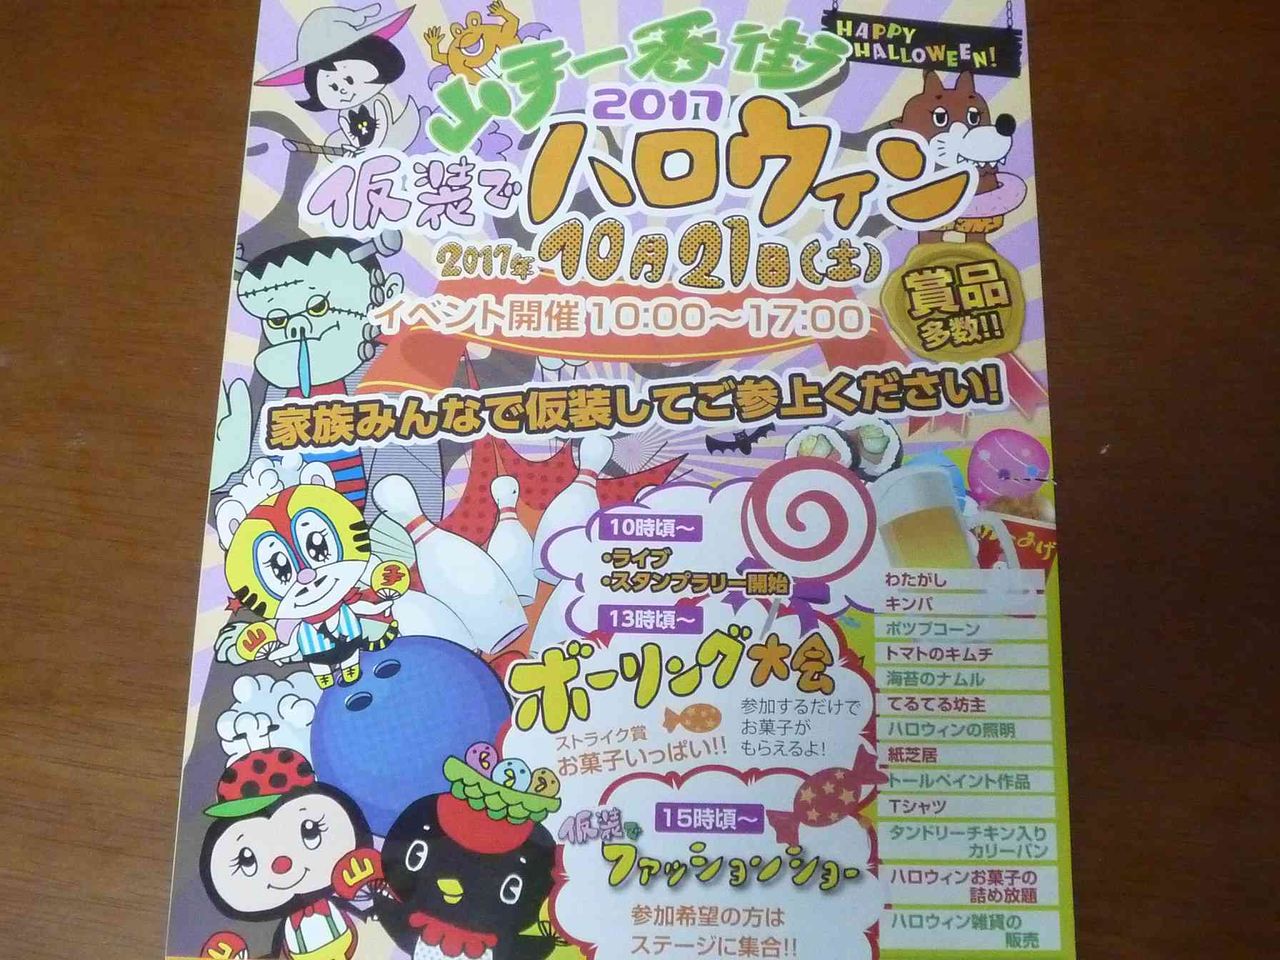 HAPPY
HALLOWEEN!
山手一番街
2017
仮装で ハロウィン
2017年 10月21日(土)
イベント開催 10:00〜17:00
賞品
多数!!
家族みんなで仮装してご参上ください!
10時頃〜
・ライブ
・スタンプラリー開始
13時頃〜
ボーリング大会
ストライク賞
お菓子いっぱい!!
参加するだけで
お菓子が
もらえるよ!
15時頃〜
仮装で
ファッションショー
参加希望の方は
ステージに集合!!
わたがし
キンパ
ポップコーン
トマトのキムチ
海苔のナムル
てるてる坊主
ハロウィンの照明
紙芝居
トールペイント作品
Tシャツ
タンドリーチキン入り
カリーパン
ハロウィンお菓子の
詰め放題
ハロウィン雑貨の
販売
チ
山
山